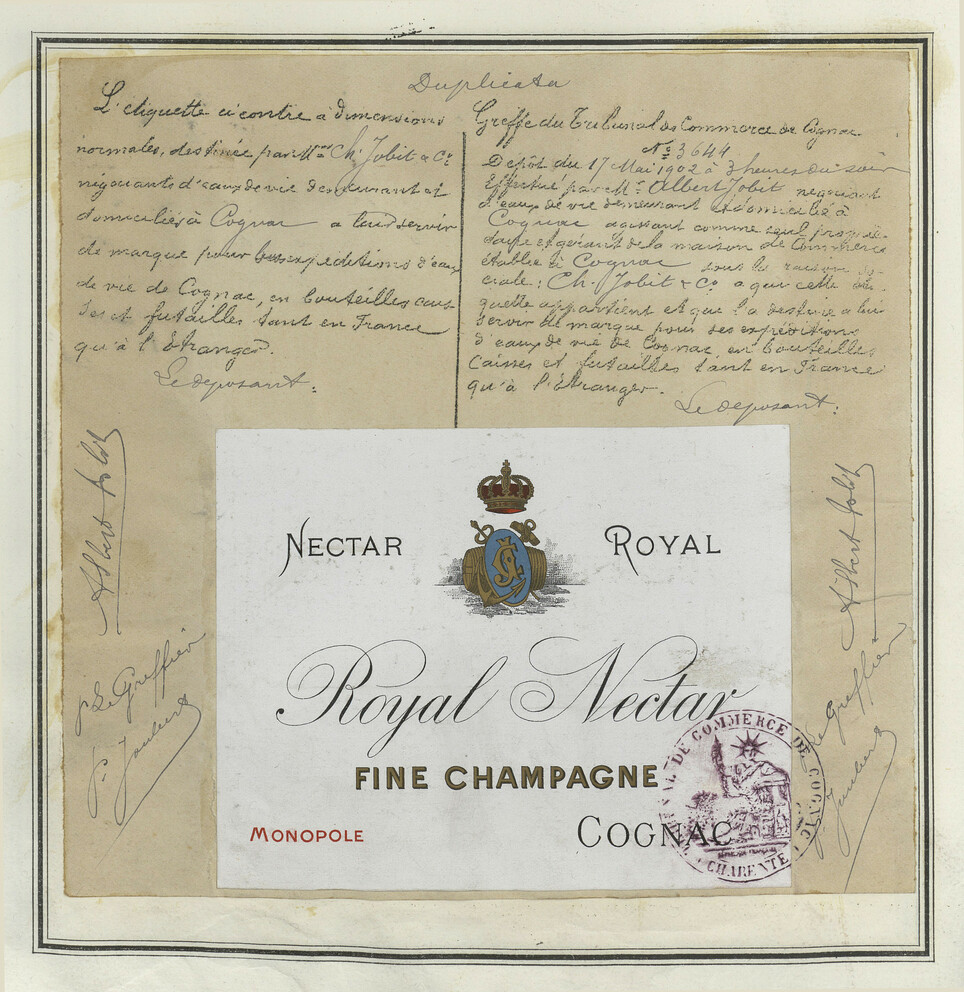 Duplicata
L'etiquette ci contre à dimensions
normales, destinée par Mrs Ch. Jobit & Co
négociants d'eaux de vie demeurant et
domiciliés à Cognac a leur servir
de marque pour leurs expeditions d'eaux
de vie de Cognac, en bouteilles cais
ses et futailles tant en France
qu'à l'Etranger.
Le deposant:
Albert Jobit
p. Le Greffier
Joubert
Greffe du Tribunal de Commerce de Cognac
No 3644
Depôt du 17 Mai 1902 à 3 heures du soir
Effectué par Mr Albert Jobit negociant
d'eaux de vie demeurant et domicilié à
Cognac agissant comme seul proprié-
taire et gérant de la maison de Commerce
établie à Cognac sous la raison so-
ciale: Ch. Jobit & Co a qui cette éti-
quette appartient et que l'a destinée a lui
servir de marque pour ses expéditions
d'eaux de vie de Cognac, en bouteilles
caisses et futailles tant en France
qu'à l'Etranger.
Le deposant:
Albert Jobit
Le Greffier
Joubert
NECTAR ROYAL
Royal Nectar
FINE CHAMPAGNE
MONOPOLE
COGNAC
TRIBUNAL DE COMMERCE DE COGNAC
CHARENTE